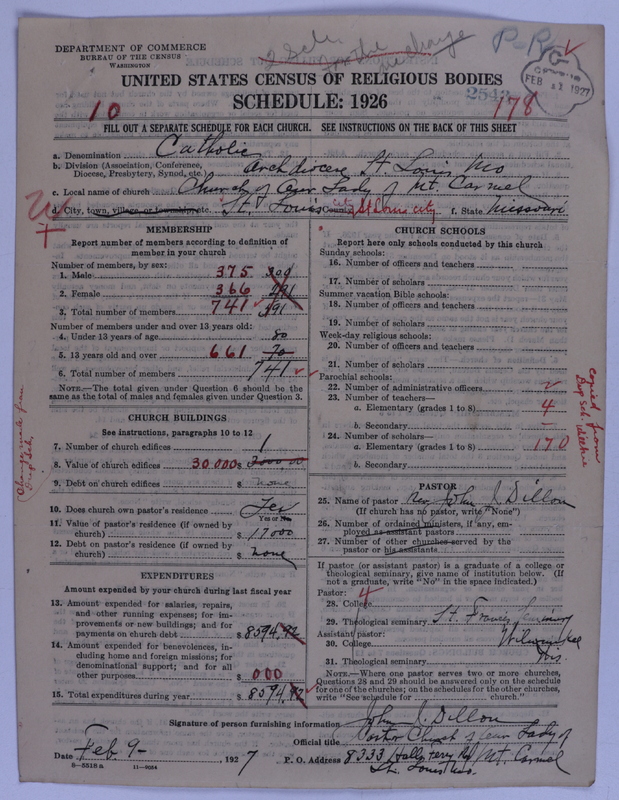 DEPARTMENT OF COMMERCE
BUREAU OF THE CENSUS
WASHINGTON
2 Sch.
P-R
FEB 11 1927
UNITED STATES CENSUS OF RELIGIOUS BODIES
SCHEDULE: 1926
10
178
FILL OUT A SEPARATE SCHEDULE FOR EACH CHURCH. SEE INSTRUCTIONS ON THE BACK OF THIS SHEET
a. Denomination Catholic
b. Division (Association, Conference, Diocese, Presbytery, Synod, etc.) Archdiocese St. Louis Mo
c. Local name of church Church of Our Lady of Mt. Carmel
d. City, town, village, or township, etc. St. Louis County city St Louis city f. State Missouri
MEMBERSHIP
Report number of members according to definition of member in your church
Number of members, by sex:
1. Male 375 300
2. Female 366
3. Total number of members 741
Number of members under and over 13 years old:
4. Under 13 years of age 80
5. 13 years old and over 661 70
6. Total number of members 741
NOTE.—The total given under Question 6 should be the same as the total of males and females given under Question 3.
CHURCH BUILDINGS
See instructions, paragraphs 10 to 12
7. Number of church edifices 1
8. Value of church edifices 30.000 $
9. Debt on church edifices $ none
10. Does church own pastor's residence? Yes
Yes or No
11. Value of pastor's residence (if owned by church) $ 17000
12. Debt on pastor's residence (if owned by church) $ none
EXPENDITURES
Amount expended by your church during last fiscal year
13. Amount expended for salaries, repairs, and other running expenses; for improvements or new buildings; and for payments on church debt $ 8594.92
14. Amount expended for benevolences, including home and foreign missions; for denominational support; and for all other purposes $ 000
15. Total expenditures during year $ 8594.92
CHURCH SCHOOLS
Report here only schools conducted by this church
Sunday schools:
16. Number of officers and teachers
17. Number of scholars
Summer vacation Bible schools:
18. Number of officers and teachers
19. Number of scholars
Week-day religious schools:
20. Number of officers and teachers
21. Number of scholars
Parochial schools:
22. Number of administrative officers
23. Number of teachers—
a. Elementary (grades 1 to 8) 4
b. Secondary —
24. Number of scholars—
a. Elementary (grades 1 to 8) 170
b. Secondary
copied from Dup Sch.
PASTOR
25. Name of pastor Rev John J. Dillon
(If church has no pastor, write "None")
26. Number of ordained ministers, if any, employed as assistant pastors
27. Number of other churches served by the pastor or his assistants
If pastor (or assistant pastor) is a graduate of a college or theological seminary, give name of institution below. (If not a graduate, write "No" in the space indicated.)
Pastor: 4
28. College
29. Theological seminary St. Francis Seminary
Assistant pastor:
30. College Milwaukee
31. Theological seminary Wis.
NOTE.—Where one pastor serves two or more churches, Questions 28 and 29 should be answered only on the schedule for one of the churches; on the schedules for the other churches, write "See schedule for church."
Signature of person furnishing information John J. Dillon
Official title Pastor Church of Our Lady of Mt. Carmel
Date Feb 9- 1927
P. O. Address 8333 Halls Ferry Rd
St. Louis Mo.
8—5518a 11—9054